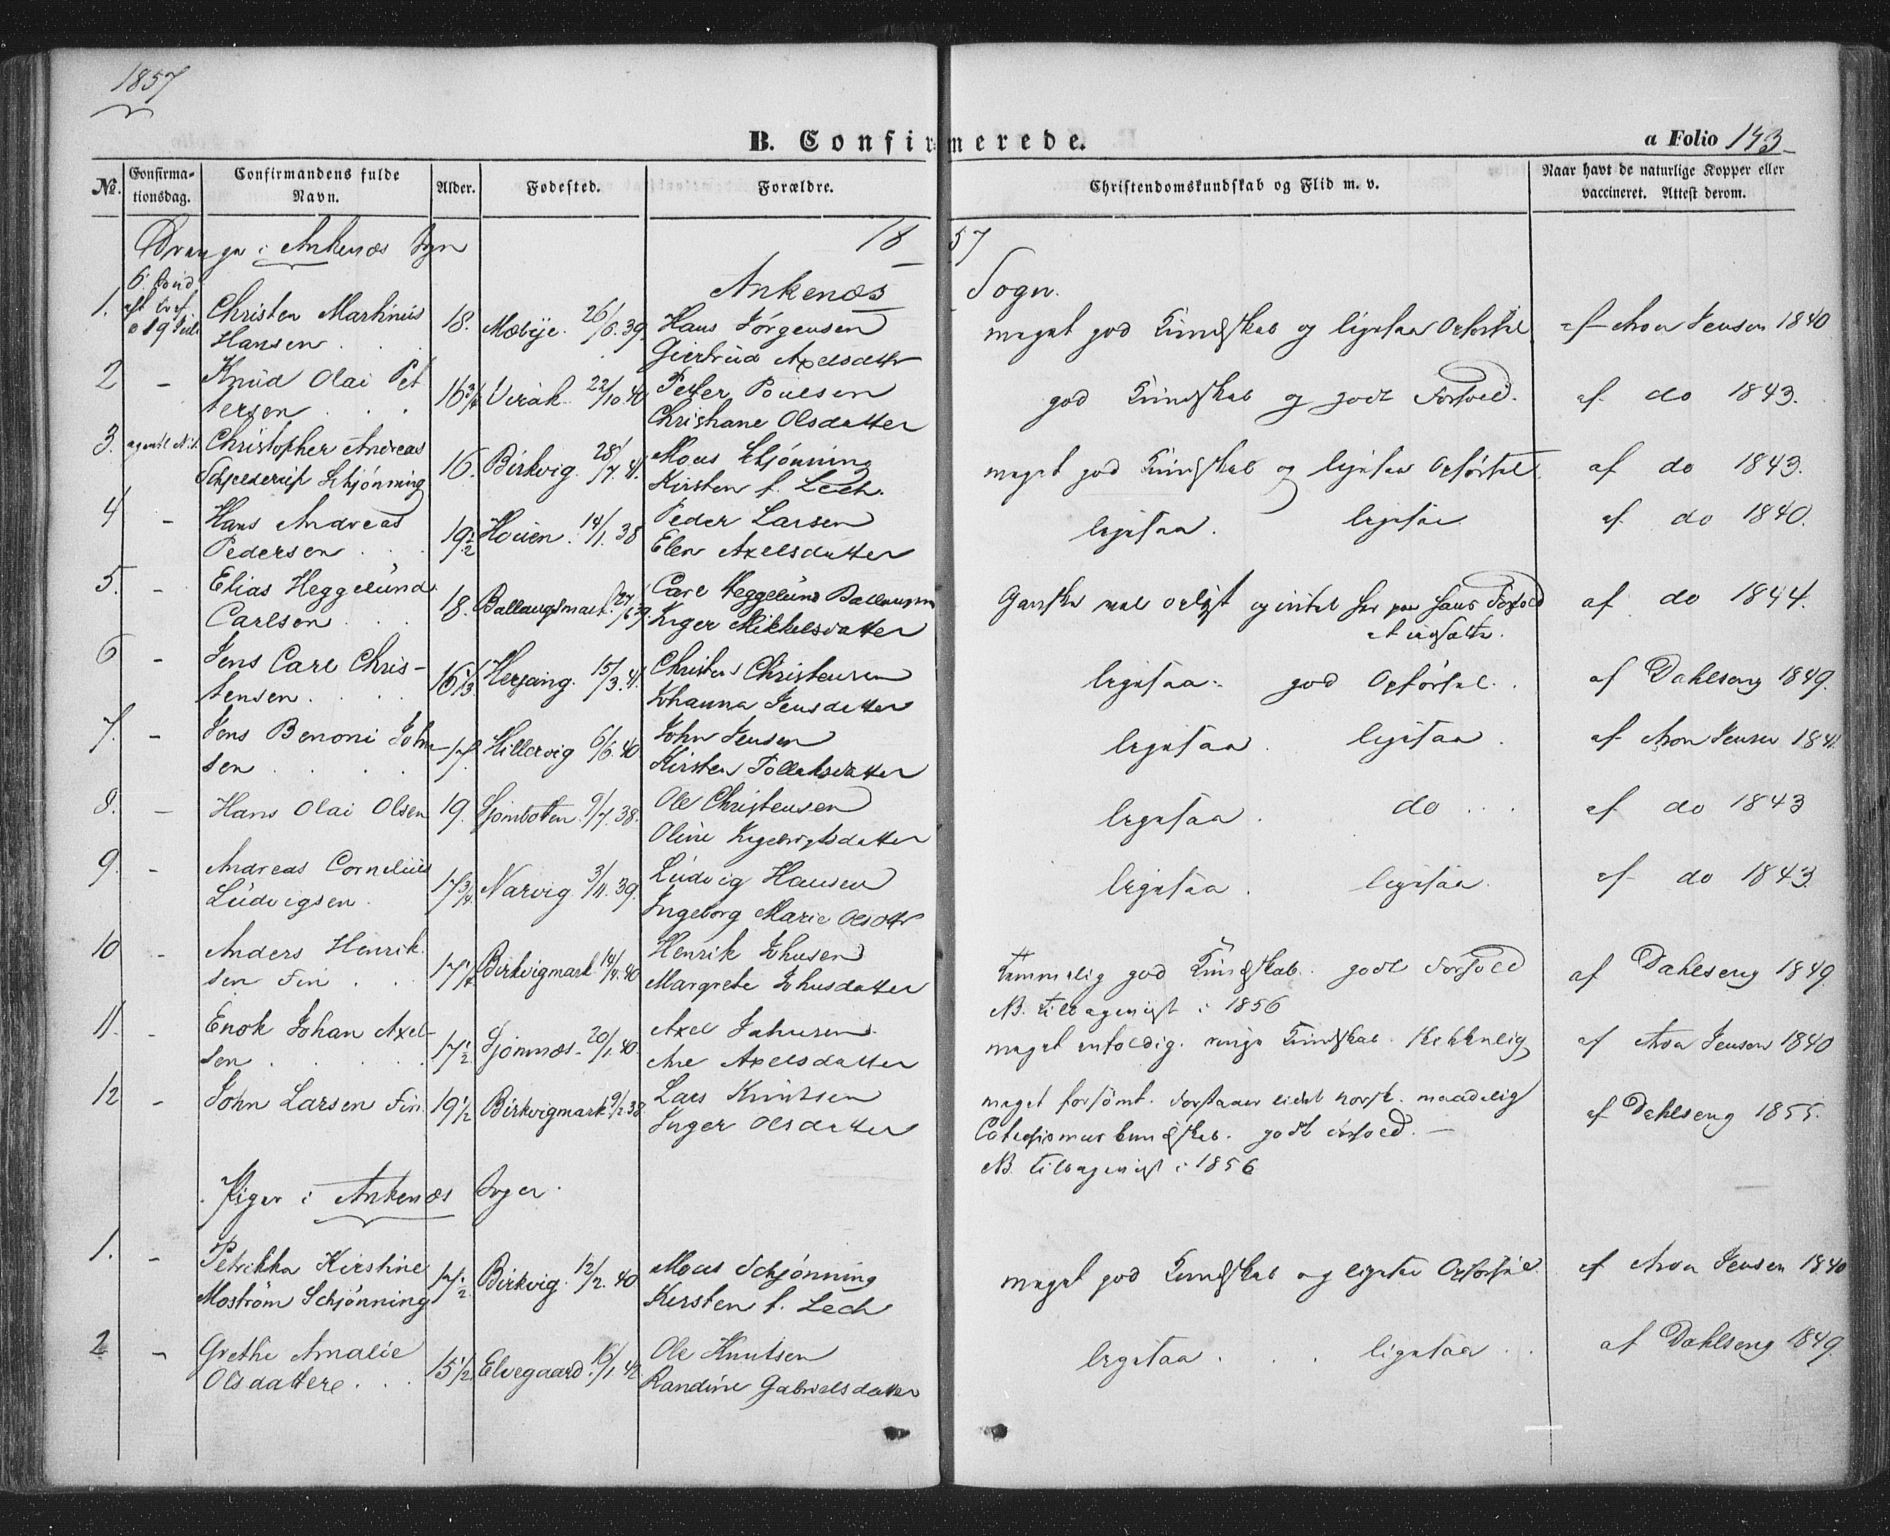 1857
B. Confirmerede.
a Folio 143
No. Confirmationsdag. Confirmandens fulde Navn. Alder. Fodested. Forældre. Christendomskundskab og Flid m. v. Naar havt de naturlige Kopper eller vaccineret. Attest derom.
Drenge i Ankenæs Sogn 1857
Ankenæs Sogn.
1. Christen Martinus 18. Mæbye. 26/6. 39. Hans Jørgensen meget god Kundskab og ligesaa Opførsel af Aron Jensen 1840
Hansen . . Giertrud Axelsdattr
2 - Knud Olai Pet 16 3/4 Virak. 22/10. 40 Petter Poulsen god Kundskab og godt Forhold. af do 1843.
tersen . . . Christiane Olsdatter
3. Christopher Andreas 16. Birkvig. 28/7. 41. Moses Schjønning meget god Kundskab og ligesaa Opførsel af do 1843.
Schjelderup Schjønning Kirsten f. Lech.
4 - Hans Andreas 19 1/2 Houen. 14/1. 38 Peder Larsen ligesaa. ligesaa af do 1840.
Pedersen . . . Elen Axelsdatter
5. - Elias Heggelund 18. Ballangsmark. 27/6 39. Carl Heggelund Ganske vel oplyst og intet paa hans Forhold af do 1844.
Carlsen . . . Inger Mikkelsdatter at udsætte.
6 - Jens Carl Chris- 16 1/3 Herjang. 15/3. 41. Christen Christensen ligesaa. god Opførsel. . af Dahlseng 1849.
tensen . . . Johanna Jensdatter
7. - Jens Benoni John 17. Hillervig 6/6. 40 John Jensen ligesaa. ligesaa. af Aron Jensen 184
sen . . . Kirsten Tollaksdatter
8. - Hans Olai Olsen 19. Sjombotten. 9/7. 38. Ole Christensen ligesaa. do . . . af do 1843
Oline Ingebrigtsdatter
9. - Andreas Cornelius 17 3/4 Narvig 3/11. 39. Ludvig Hansen ligesaa. ligesaa. af do 1843
Ludvigsen. Ingeborg Marie Olsdtr
10 - Anders Henrik 17 1/4 Birkvigmark 14/4. 40 Henrik Johnsen temmelig god Kundskab. godt Forhold af Dahlseng 1849.
sen Fin . . . Margrete Johnsdatter NB. tilbagevist i 1856
11. - Enok Johan Axel- 17 1/2 Sjomnæs. 20/1. 40. Axel meget enfoldig. ringe Kundskab. skikkelig af Aron Jensen 1840
sen . . . . Ane Axelsdatter
12 - John Larsen Fin. 19 1/2 Birkvigmark. 9/2. 38 Lars Knutsen meget forsömt. Forstaaer lidet norsk. maadelig af Dahlseng 1855.
Inger Olsdatter Catechismuskundskab. godt Forhold. -
NB. tilbagevist i 1856
Piger i Ankenæs Sogn.
1. - Petrikka Kirstine 17 1/2 Birkvig. 12/2. 40 Moses Schjønning meget god Kundskab og ligesaa Opførsel. af Aron Jensen 1840
Moström Schjønning Kirsten f. Lech
2 - Grethe Amalie 15 1/2 Elvegaard. 16/1. 42 Ole Knutsen ligesaa . . . ligesaa . . af Dahlseng 1849.
Olsdattere . . . Randine Gabrielsdatter